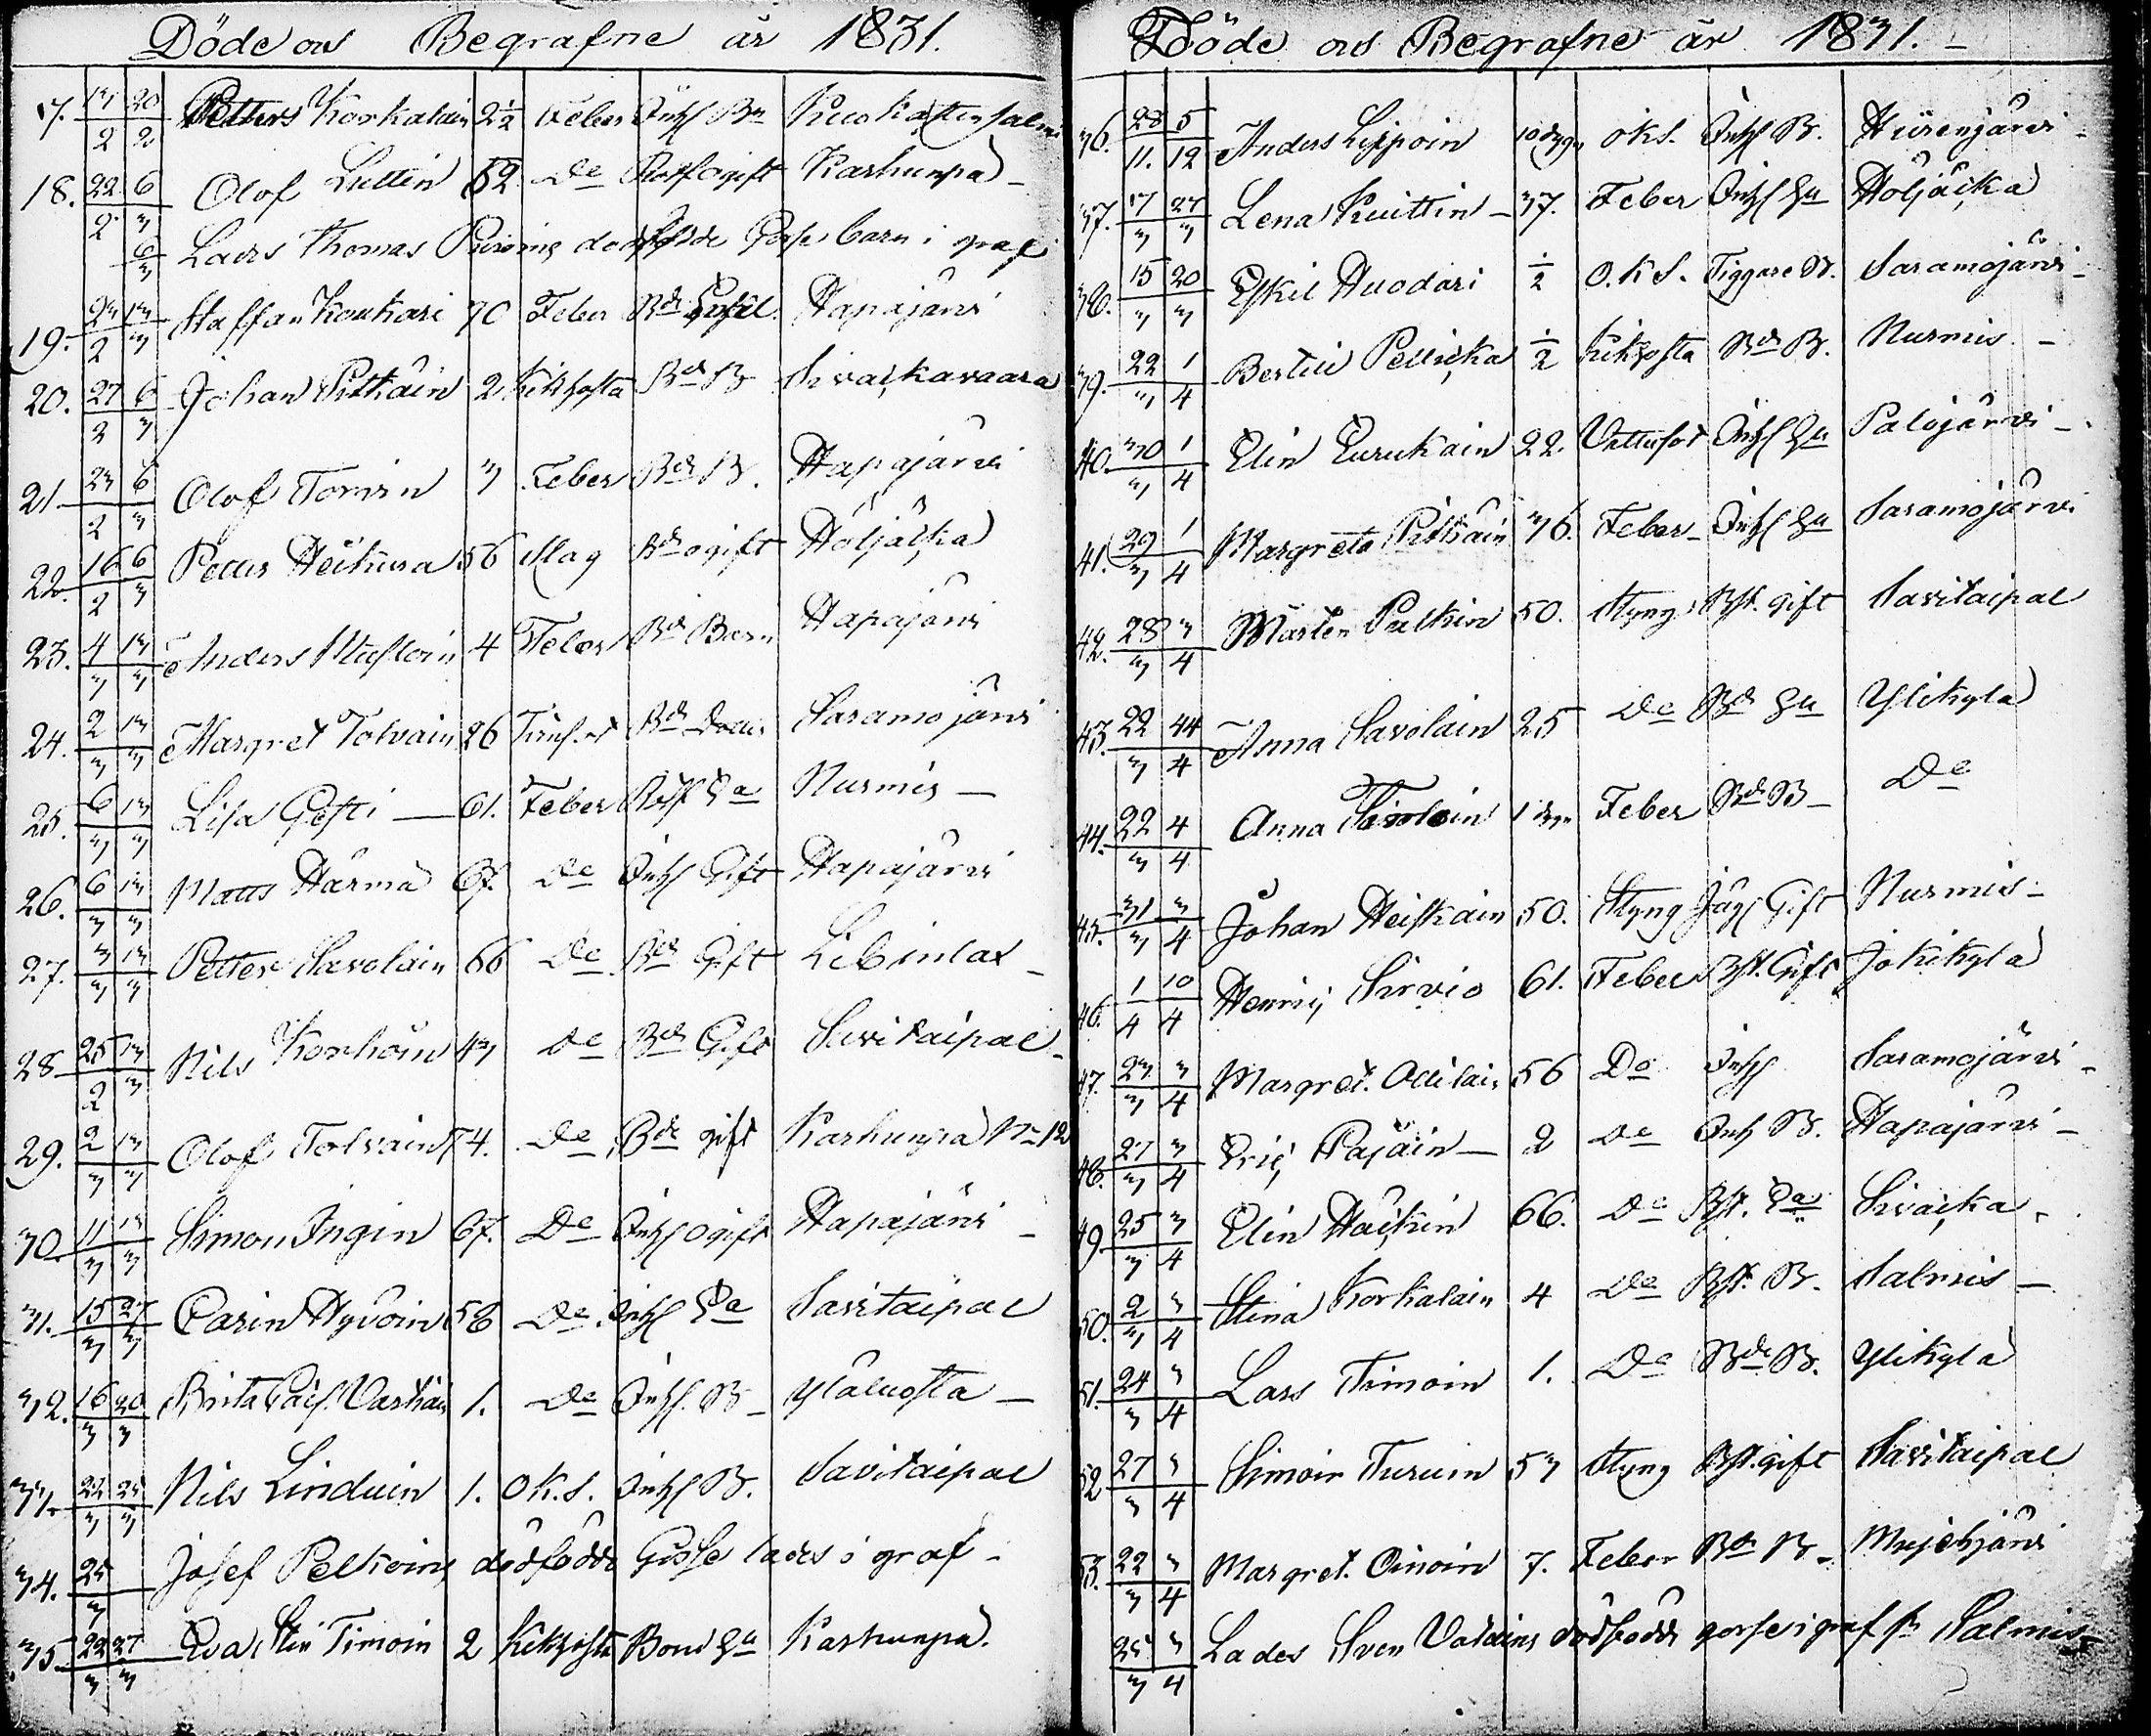 Döde och Begrafne år 1831.
17. 13/2 20/2 Petters Korkalain 2½ Feber Inhs Bn Kuokattensalmi
18. 22/2 6/3 Olof Luttin 52 Do ogift Karhunpä
6/3 Lades Thomas dödfödde Gosse barn i graf
19. 23/2 13/3 Staffan Koukari 70 Feber Bd Hapajärvi
20. 27/2 6/3 Johan Pitkäin 2 Kikhosta Bd B Sivackavaara
21 23/2 6/3 Olof Torvin 3 Feber Bd B. Hapajärvi
22. 16/2 6/3 Petter Heikura 56 Slag Bd ogift Höljäcka
23. 4/3 13/3 Anders 4 Feber Bd Barn Hapajärvi
24. 2/3 13/3 Margret Tolvain 26 Bd Saramojärvi
25. 6/3 13/3 Lisa 61. Feber Nurmis
26. 6/3 13/3 Matts Härmä 67. De Inhs Gift Hapajärvi
27. 3/3 13/3 Petter Savolain 66 De Bd Gift Libinlax
28 25/2 13/3 Nils Korhoin 43 De Bd Gift Savitaipal
29. 2/3 13/3 Olof Tolvain 74. De Bd gift Karhunpä No 12
30. 11/3 13/3 Simon Ingin 67. De Inhs ogift Hapajärvi
31. 15/3 27/3 Carin Hyvöin 58 De Inhs Savitaipal
32. 16/3 20/3 Brita Vartiain 1. De Inhs. B Yläluosta
33. 22/3 25/3 Nils Linduin 1. O.K.S. Inhs B. Savitaipal
34. 25/3 Josef Pelkoins dödfödde Gosse lades i graf
35 22/3 27/3 Eva Stin Timoin 2 Kikhosta Bond Karhunpä.
Döde och Begrafne år 1831.
36. 28/11. 5/12 Anders Lippoin 10 dygn oks. Inhs B. Hiirenjärvi
37. 17/3 27/3 Lena Kuittin 37. Feber Inhs Hu Höljäcka
38. 15/3 20/3 Eskil Huodari ½ O.K.S. Tiggare B. Saramojärvi
39. 22/3 1/4 Bertil Pellicka ½ Kikhosta Bd B. Nurmis
40. 30/3 1/4 Elin Turukain 22. Vattusot Inhs Hu Palojärvi
41. 29/3 1/4 Margreta Pitkäin 36. Feber Inhs Hu Saramojärvi
42. 28/3 3/4 Mårten Pulkin 50. Styng Bst. gift Savitaipal
43. 22/3 44/4 Anna Savolain 25 De Bd Hu Ylikylä
44. 22/3 4/4 Anna Savolain Feber Bd B De
45. 31/3 3/4 Johan Heiskain 50. Styng Gift Nurmis
46. 1/4 10/4 Henric Sirviö 61. Feber Bst. Gift Jokikylä
47. 23/3 3/4 Margret. Ollilain 56 De Inhs Saramojärvi
48. 27/3 3/4 Eric Pajain 2 De Inh B. Hapajärvi
49 25/3 3/4 Elin Häckin 66. De Bst. Sivacka
50. 2/3 3/4 Stina Korkalain 4 De Bst. B. Salmis
51. 24/3 3/4 Lars Timoin 1. De Bd B. Ylikylä
52 27/3 3/4 Simoin Turuin 53 Styng Bst. gift Savitaipal
53. 22/3 3/4 Margret. Oinoin 7. Feber Bd B Mujejärvi
25/3 3/4 Lades Sven dödfödde gosse i graf fr Salmis